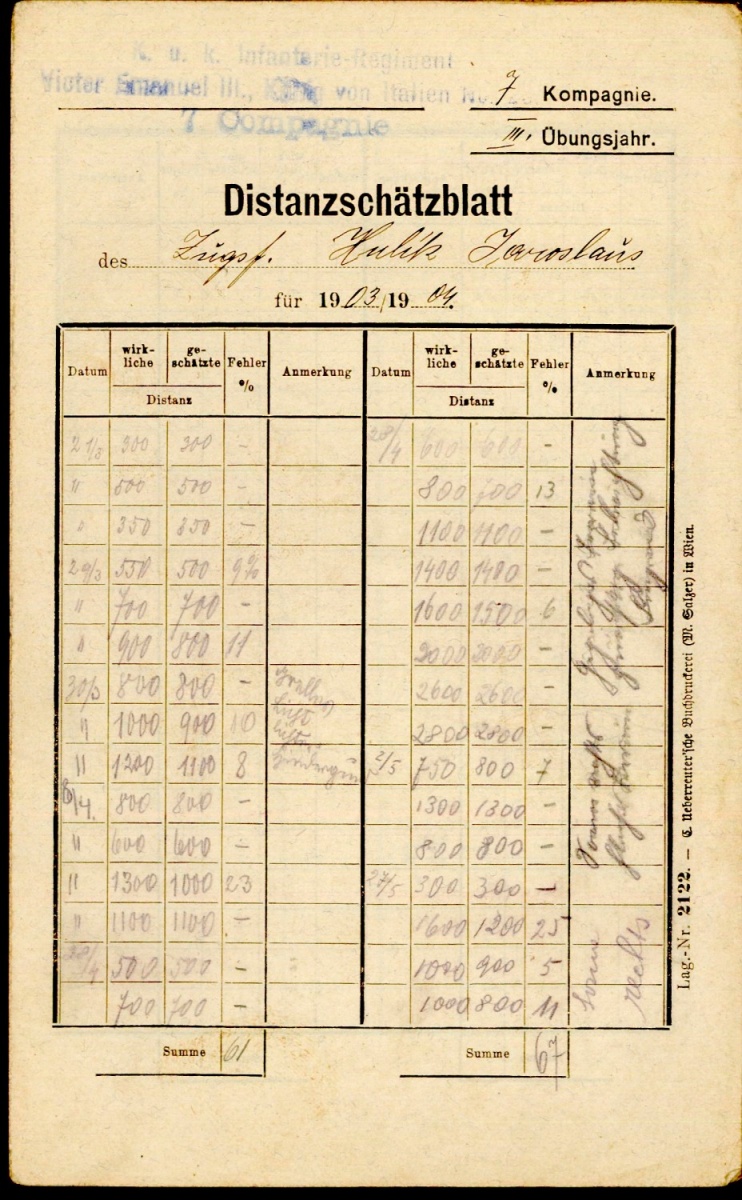 K. u. k. Infanterie-Regiment
Victor Emanuel III., König von Italien No.
7 Compagnie
7 Kompagnie.
III. Übungsjahr.
Distanzschätzblatt
des Zugsf. Hulik Jaroslaus
für 1903/1904.
Datum wirk- liche ge- schätzte Fehler % Anmerkung Datum wirk- liche ge- schätzte Fehler % Anmerkung
Distanz Distanz
300 300 – 28/4 600 600 –
" 500 500 – 800 700 13
" 350 350 – 1100 1100 –
29/3 550 500 9% 1400 1400 –
" 700 700 – 1600 1500 6
" 900 800 11 2000 2000 –
30/3 800 800 – 2600 2600 –
" 1000 900 10 2800 2800 –
" 1200 1100 8 2/5 750 800 7
8/4. 800 800 – 1300 1300 –
" 600 600 – 800 800 –
" 1300 1000 23 27/5 300 300 –
" 1100 1100 – 1600 1200 25
28/4 500 500 – " 1000 900 5
700 700 – 1000 800 11
Sonne rechts
Summe 61 Summe 67
Lag.-Nr. 2122. — C. Ueberreuter'sche Buchdruckerei (M. Salzer) in Wien.